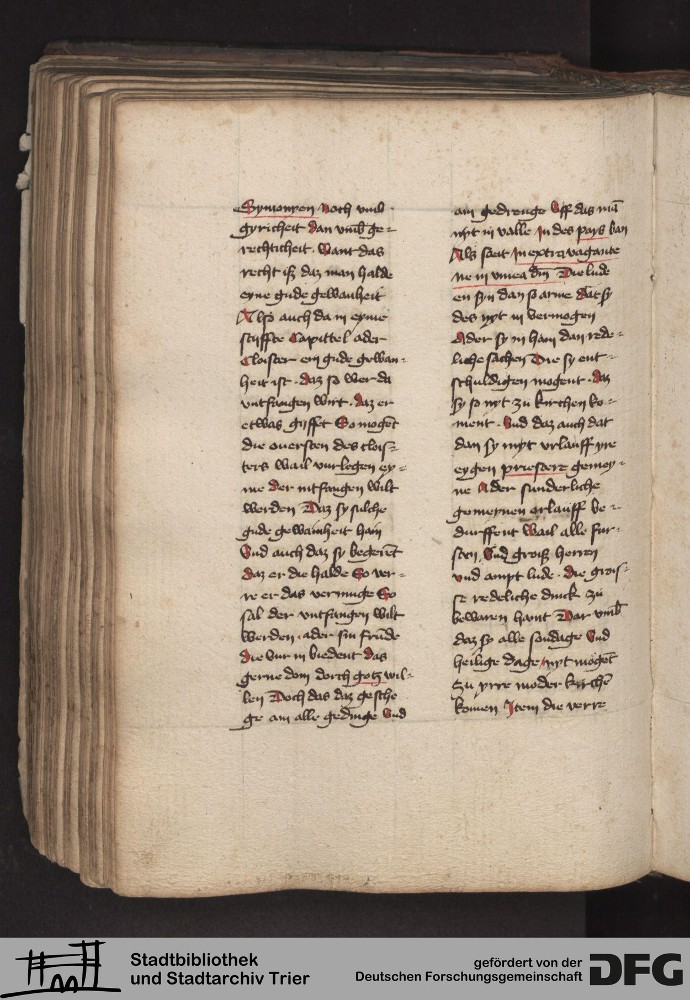 Symonyen Noch vmb
gyricheit dan vmb ge-
rechticheit. Want das
recht iß daz man halde
eyne gude gewanheit
Also auch da in eyme
stiffte Capittel ader
Cloister ein gude gewan-
heit ist. daz so wer da
vntfangen wirt. daz er
etwas gifft So mogēt
die ouersten des clois-
ters wail vurlegen ey-
me der intfangen wilt
werden Daz sy sulche
gude gewainheit hain
Vnd auch daz sy begerēt
daz er die halde So ver-
re er das vermuge So
sal der vntfangen wilt
werden. ader sin frūde
die vur in biedent das
gerne don dorch gotz wil-
len Doch das daz gesche
ge ain alle gedinge Vnd
ain gedrenge Vff das mā
nyt in valle In des pays ban
Als steit In extravagante
ne in vinea dn̄i Die lude
en syn dan so arme dat sy
des nyt in vermogen
Ader sy in hain dan rede-
liche sachen Die sy ent-
schuldigen mogent. daz
sy so nyt zu kirchen ko-
ment. Vnd daz auch dat
dan sy myt vrlauff yre
eygen priestere gemey-
ne Ader sunderliche
gemeynen orlauff be-
durffent Wail alle fur-
sten, Vnd groiß herren
vnd ampt lude. die grois-
se redeliche dinck zu
bewaren haint Dar vmb
daz so alle sondage Vnd
heilige dage nyt mogēt
zu yrre moder kirchē
komen Item die verre
Stadtbibliothek
und Stadtarchiv Trier
gefördert von der
Deutschen Forschungsgemeinschaft
DFG